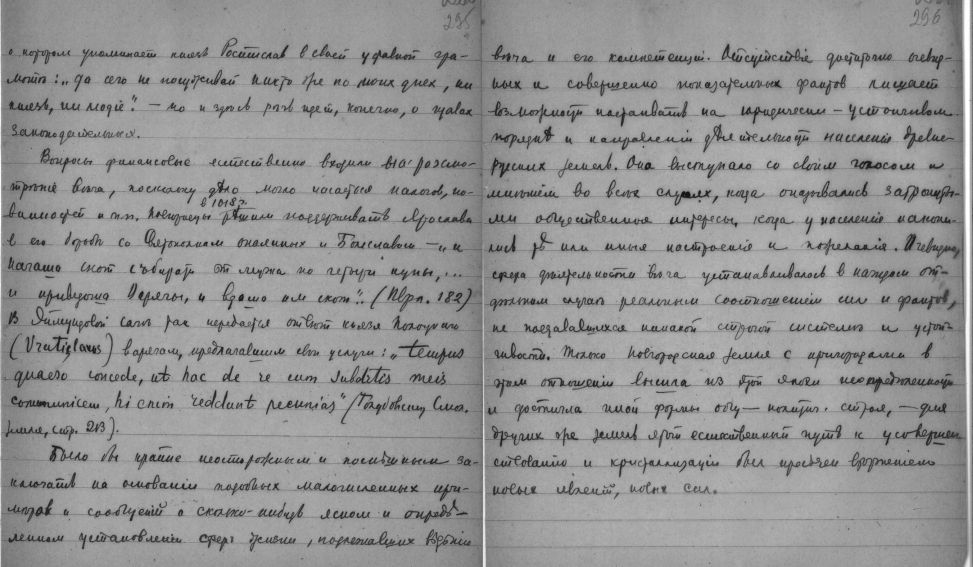 295
о которомъ упоминаетъ князь Ростиславъ в своей уставной гра-
мотѣ: „да сего не посуживай никто же по моихъ днех, ни
князь, ни людіе“ — но и здѣсь рѣчь идетъ, конечно, о правах
законодательных.
Вопросы финансовые естественно входили в разсмо-
трѣніе вѣча, поскольку дѣло могло касаться налогов, по-
винностей и т.п. Новгородцы в 1018 г. рѣшили поддерживать Ярослава
в его борьбѣ со Святополком окаянных и Болеславом — „и
начаша скот събирати от мужа по четыри куны, ...
и приведоша Варягы, и вдаша им скот“. (Ипр. 182)
В Эймундовой сагѣ так передается отвѣт князя Полоцкаго
(Vratislaus) варягам, предлагавшим свои услуги: „tempus
quaeso concede, ut hac de re cum subditis meis
communicem, hi enim reddunt pecunias“ (Голубовскій, Смол.
земля, стр. 213).
Было бы крайне неосторожным и поспѣшным за-
ключать на основаніи подобных малочисленных при-
мѣров и сообщеній о сколько-нибудь ясном и опредѣ-
ленном установленіи сферъ жизни, подлежавших вѣдѣнію
296
вѣча и его компетенціи. Отсутствіе достаточно очевид-
ных и совершенно показательных фактов лишает
возможности настаивать на юридически-устойчивом
порядкѣ и направленіи дѣятельности населенія древне-
русских земель. Оно выступало со своим голосом и
мнѣніем во всѣх случаях, когда оказывались затронуты-
ми общественные интересы, когда у населенія накопи-
лись тѣ или иныя настроенія и пожеланія. Очевидно,
сфера дѣятельности вѣча устанавливалось в каждом от-
дѣльном случаѣ реальным соотношеніем сил и фактов,
не поддававшихся никакой строгой системѣ и устой-
чивости. Только Новгородская земля с пригородами в
этом отношеніи вышла из этой эпохи неопредѣленности
и достигла иной формы общ—политич. строя, — для
других же земель этот естественный путь к усовершен-
ствованію и кристаллизаціи был пресѣчен вторженіем
новых явленій, новых сил.